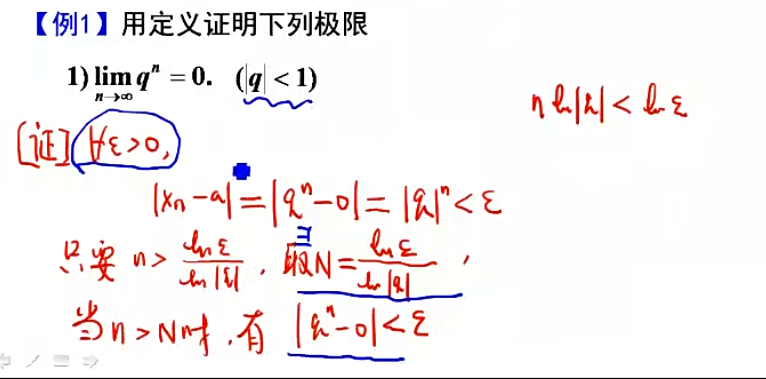 【例1】用定义证明下列极限
1) lim_{n→∞} qⁿ = 0. (|q| < 1)
n ln|q| < ln ε
[证] ∀ε>0,
|xₙ-a| = |qⁿ-0| = |q|ⁿ < ε
只要 n > ln ε / ln|q| , 取∃N = ln ε / ln|q| ,
当 n > N 时, 有 |qⁿ-0| < ε